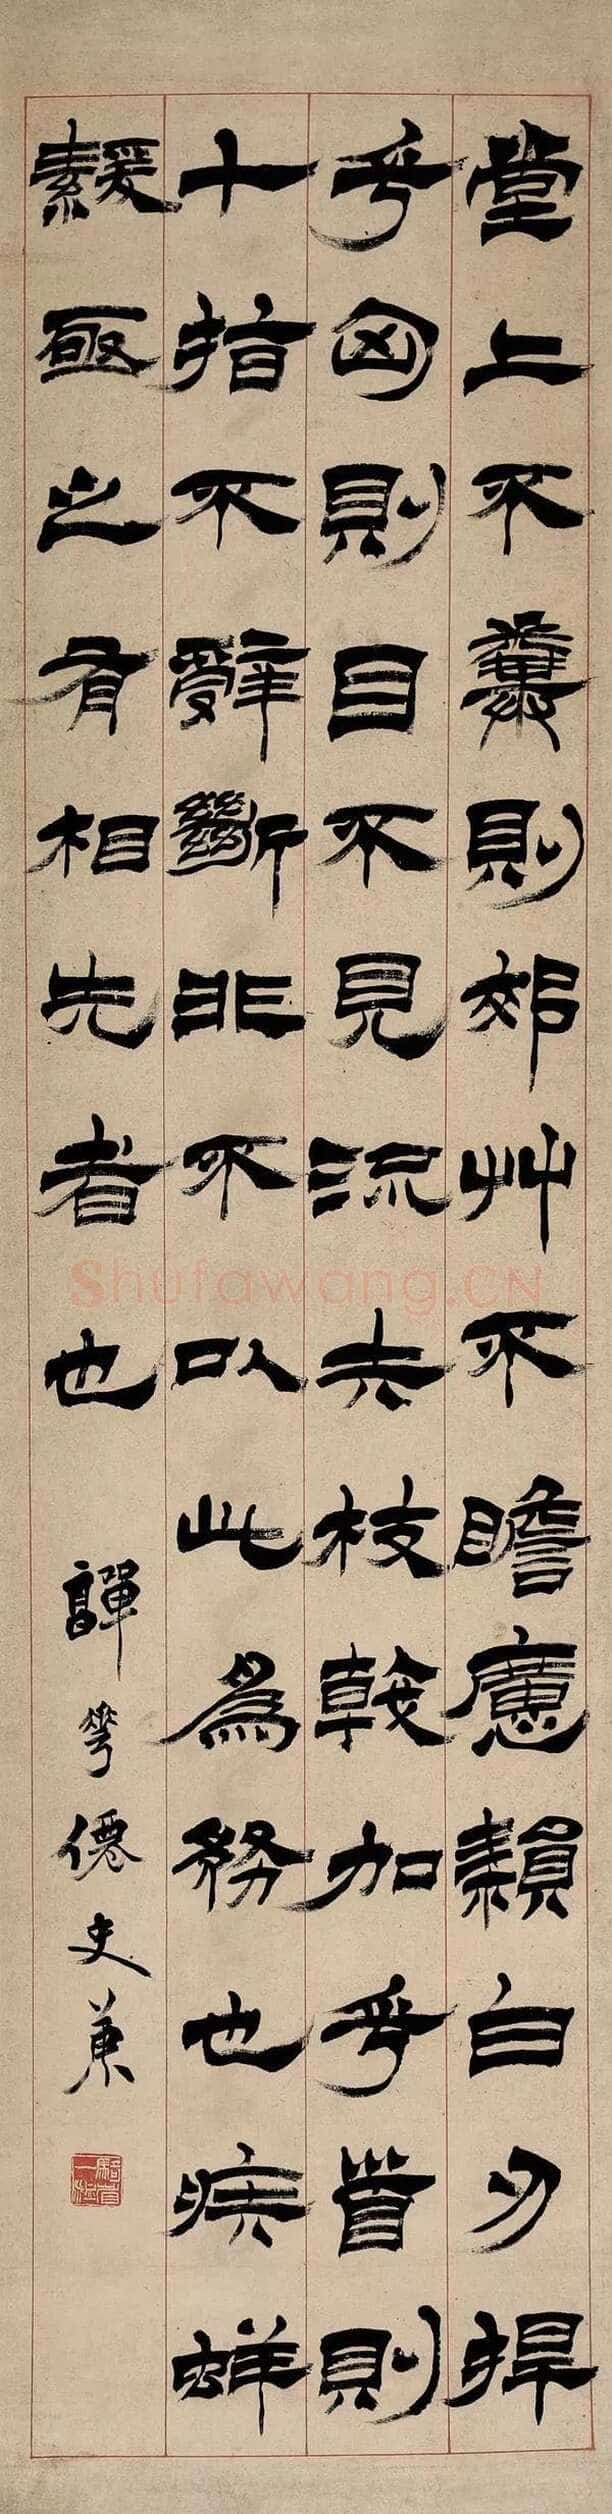 堂上不糞則郊艸不瞻懬白刃捍
乎匈則目不見流矢枝戟加乎首則
十指不辭斷非不以此為務也疾蛘
緩亟之有相先者也
華僊史
Shufawang.CN